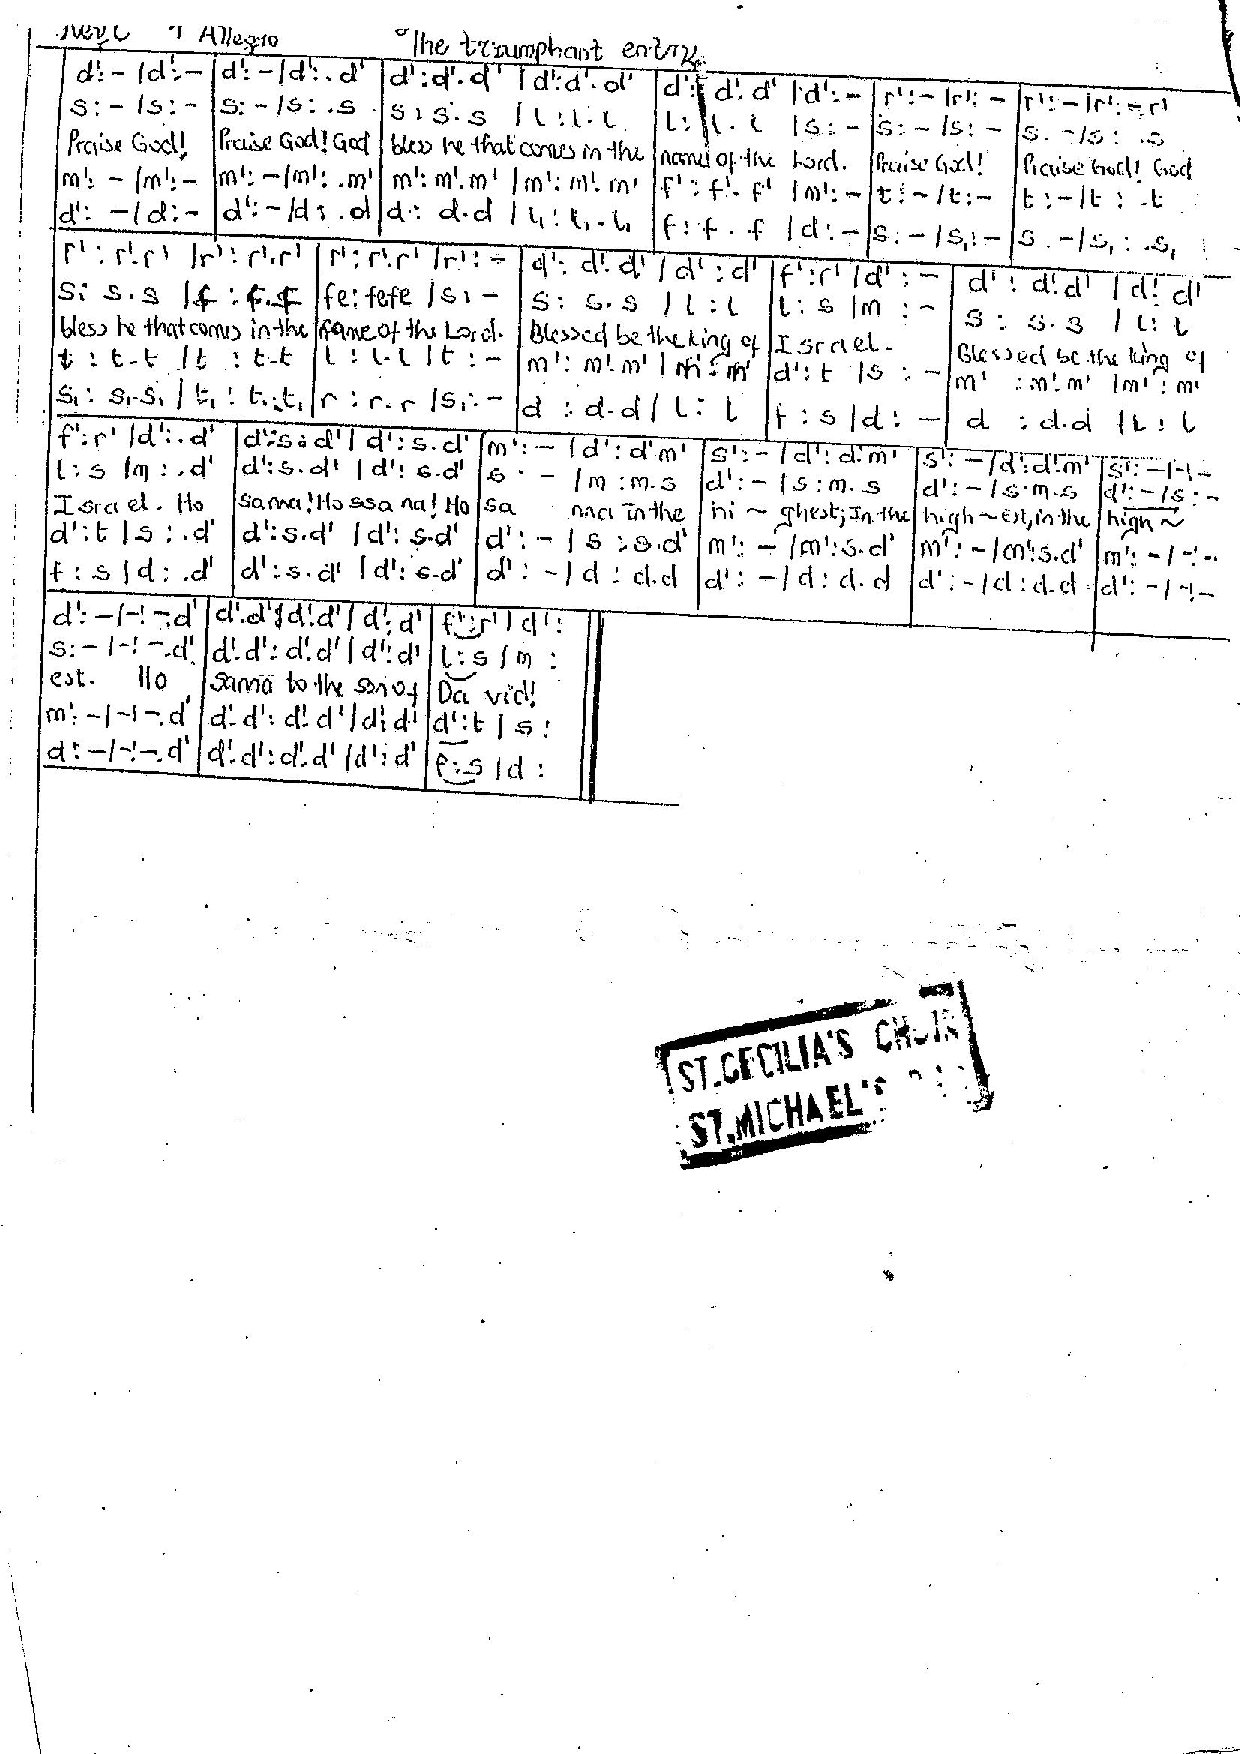 Key C Allegro The triumphant entry.
d':- /d':- | d':-/d':.d' | d':d'.d' /d':d'.d' | d': d'.d' /d':- | r':- /r':- | r':-/r':-.r'
s:- /s:- | s:- /s: .s | s: s.s / l:l.l | l: l.l /s:- | s:- /s:- | s:-/s: .s
Praise God! | Praise God! God | bless he that comes in the | name of the Lord. | Praise God! | Praise God! God
m':- /m':- | m':-/m': .m' | m':m'.m' /m':m'.m' | f':f'.f' /m':- | t:-/t:- | t:-/t: .t
d':- /d:- | d':-/d: .d | d: d.d / l₁:l₁.l₁ | f:f.f /d:- | s:-/s₁:- | s:-/s₁: .s₁
r':r'.r' /r':r'.r' | r':r'.r' /r':- | d': d'.d' / d':d' | f':r' /d':- | d': d'.d' /d':d'
s: s.s /f:f.f | fe:fefe /s:- | s: s.s / l:l | l:s /m:- | s: s.s / l:l
bless he that comes in the | name of the Lord. | Blessed be the king of | Israel. | Blessed be the king of
t:t.t /t:t.t | l:l.l /t:- | m':m'.m' /m':m' | d':t /s:- | m':m'.m' /m':m'
s₁:s₁.s₁ /t₁:t₁.t₁ | r:r.r /s₁:- | d:d.d / l:l | f:s /d:- | d:d.d /l:l
f':r' /d':.d' | d':s.d' / d':s.d' | m':- /d':d'.m' | s':- /d':d'.m' | s':-/d':d'.m' | s':-/-:-
l:s /m:.d' | d':s.d' /d':s.d' | s:- /m:m.s | d':- /s:m.s | d':-/s:m.s | d':-/s:-
Israel. Ho | sanna! Hossana! Ho | sa nna in the | hi ~ ghest; In the | high ~ est, in the | high ~
d':t /s:.d' | d':s.d' /d':s.d' | d':- /s:s.d' | m':- /m':s.d' | m':-/m':s.d' | m':-/-:-
f:s /d:.d' | d':s.d' /d':s.d' | d':- /d:d.d | d':-/d:d.d | d':-/d:d.d | d':-/-:-
d':-/-:-.d' | d'.d':d'.d' /d':d' | f':r' /d':
s:-/-:-.d' | d'.d':d'.d' /d':d' | l:s /m:
est. Ho | sanna to the son of | Da vid!
m':-/-:-.d' | d'.d':d'.d' /d':d' | d':t /s:
d':-/-:-.d' | d'.d':d'.d' /d':d' | f:s /d:
ST.CECILIA'S CHOIR
ST.MICHAEL'S